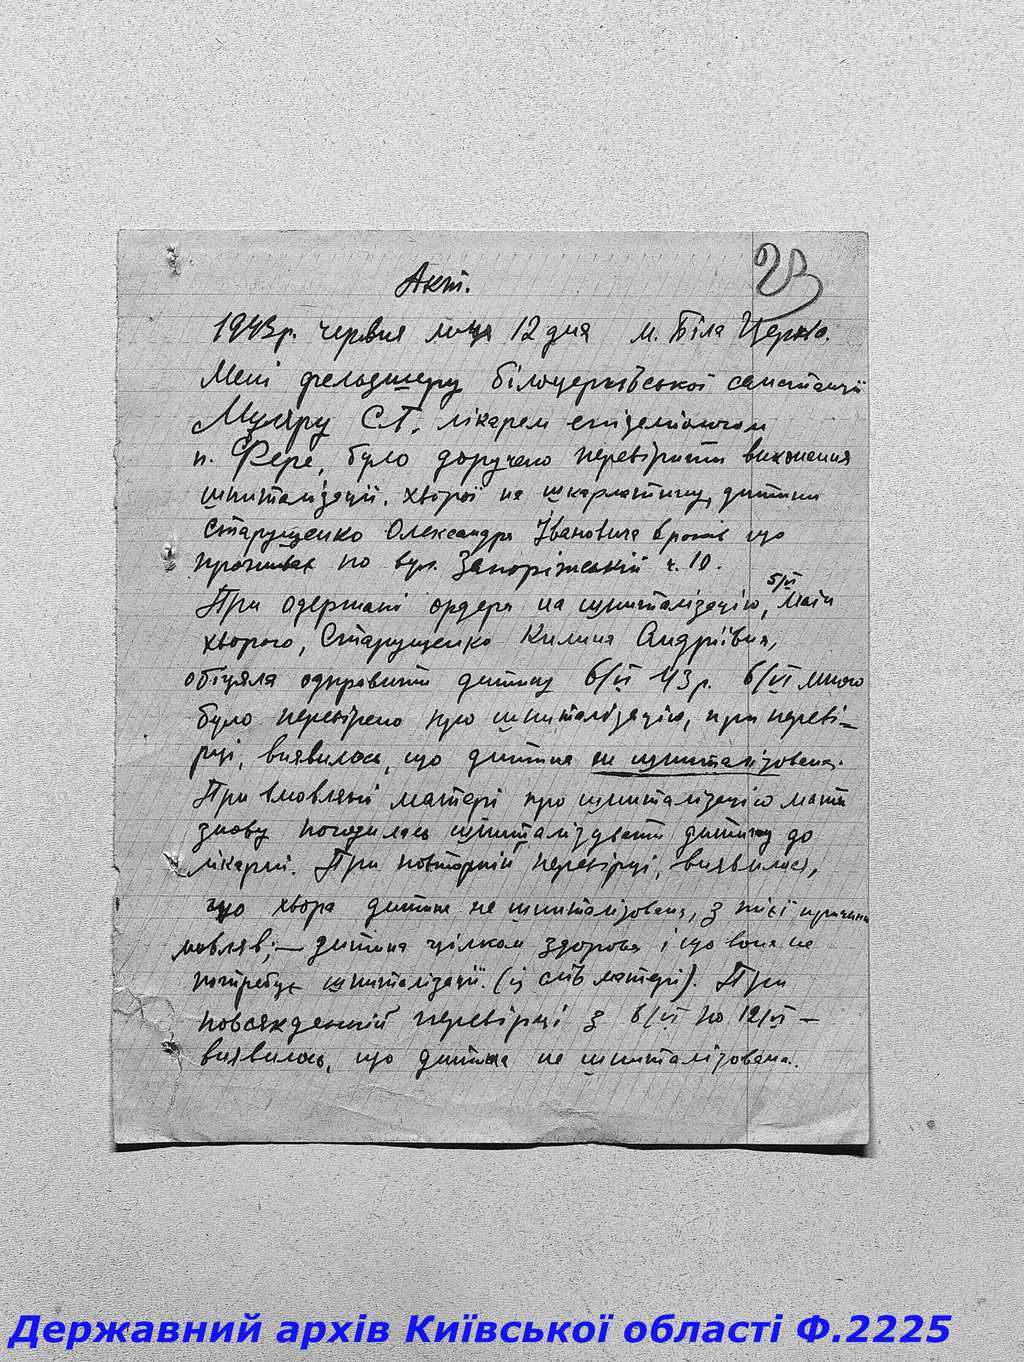 23
Акт.
1943р. червня місяця 12 дня м. Біла Церква.
Мені фельдшеру білоцерківської санстанції
Муляру С.Г. лікарем епідеміологом
п. Фере, було доручено перевірити виконання
шпиталізації. хворої на шкарлатину, дитини
Старущенко Олександра Івановича 6 років що
проживає по вул. Запоріжській ч. 10.
При одержані ордера на шпиталізацію, 5/VI мати
хворого, Старущенко Килина Андріївна,
обіцяла одправити дитину 6/VI 43 р. 6/VI мною
було перевірено про шпиталізацію, при переві-
рці, виявилось, що дитина не шпиталізована.
При вмовлянні матері про шпиталізацію мати
знову погодилась шпиталізувати дитину до
лікарні. При повторній перевірці, виявилося,
що хвора дитина не шпиталізована, з тієї причини
мовляв; — дитина цілком здорова і що вона не
потребує шпиталізації. (із слів матері). При
повсякденній перевірці з 6/VI по 12/VI —
виявилось, що дитина не шпиталізована.
Державний архів Київської області Ф.2225